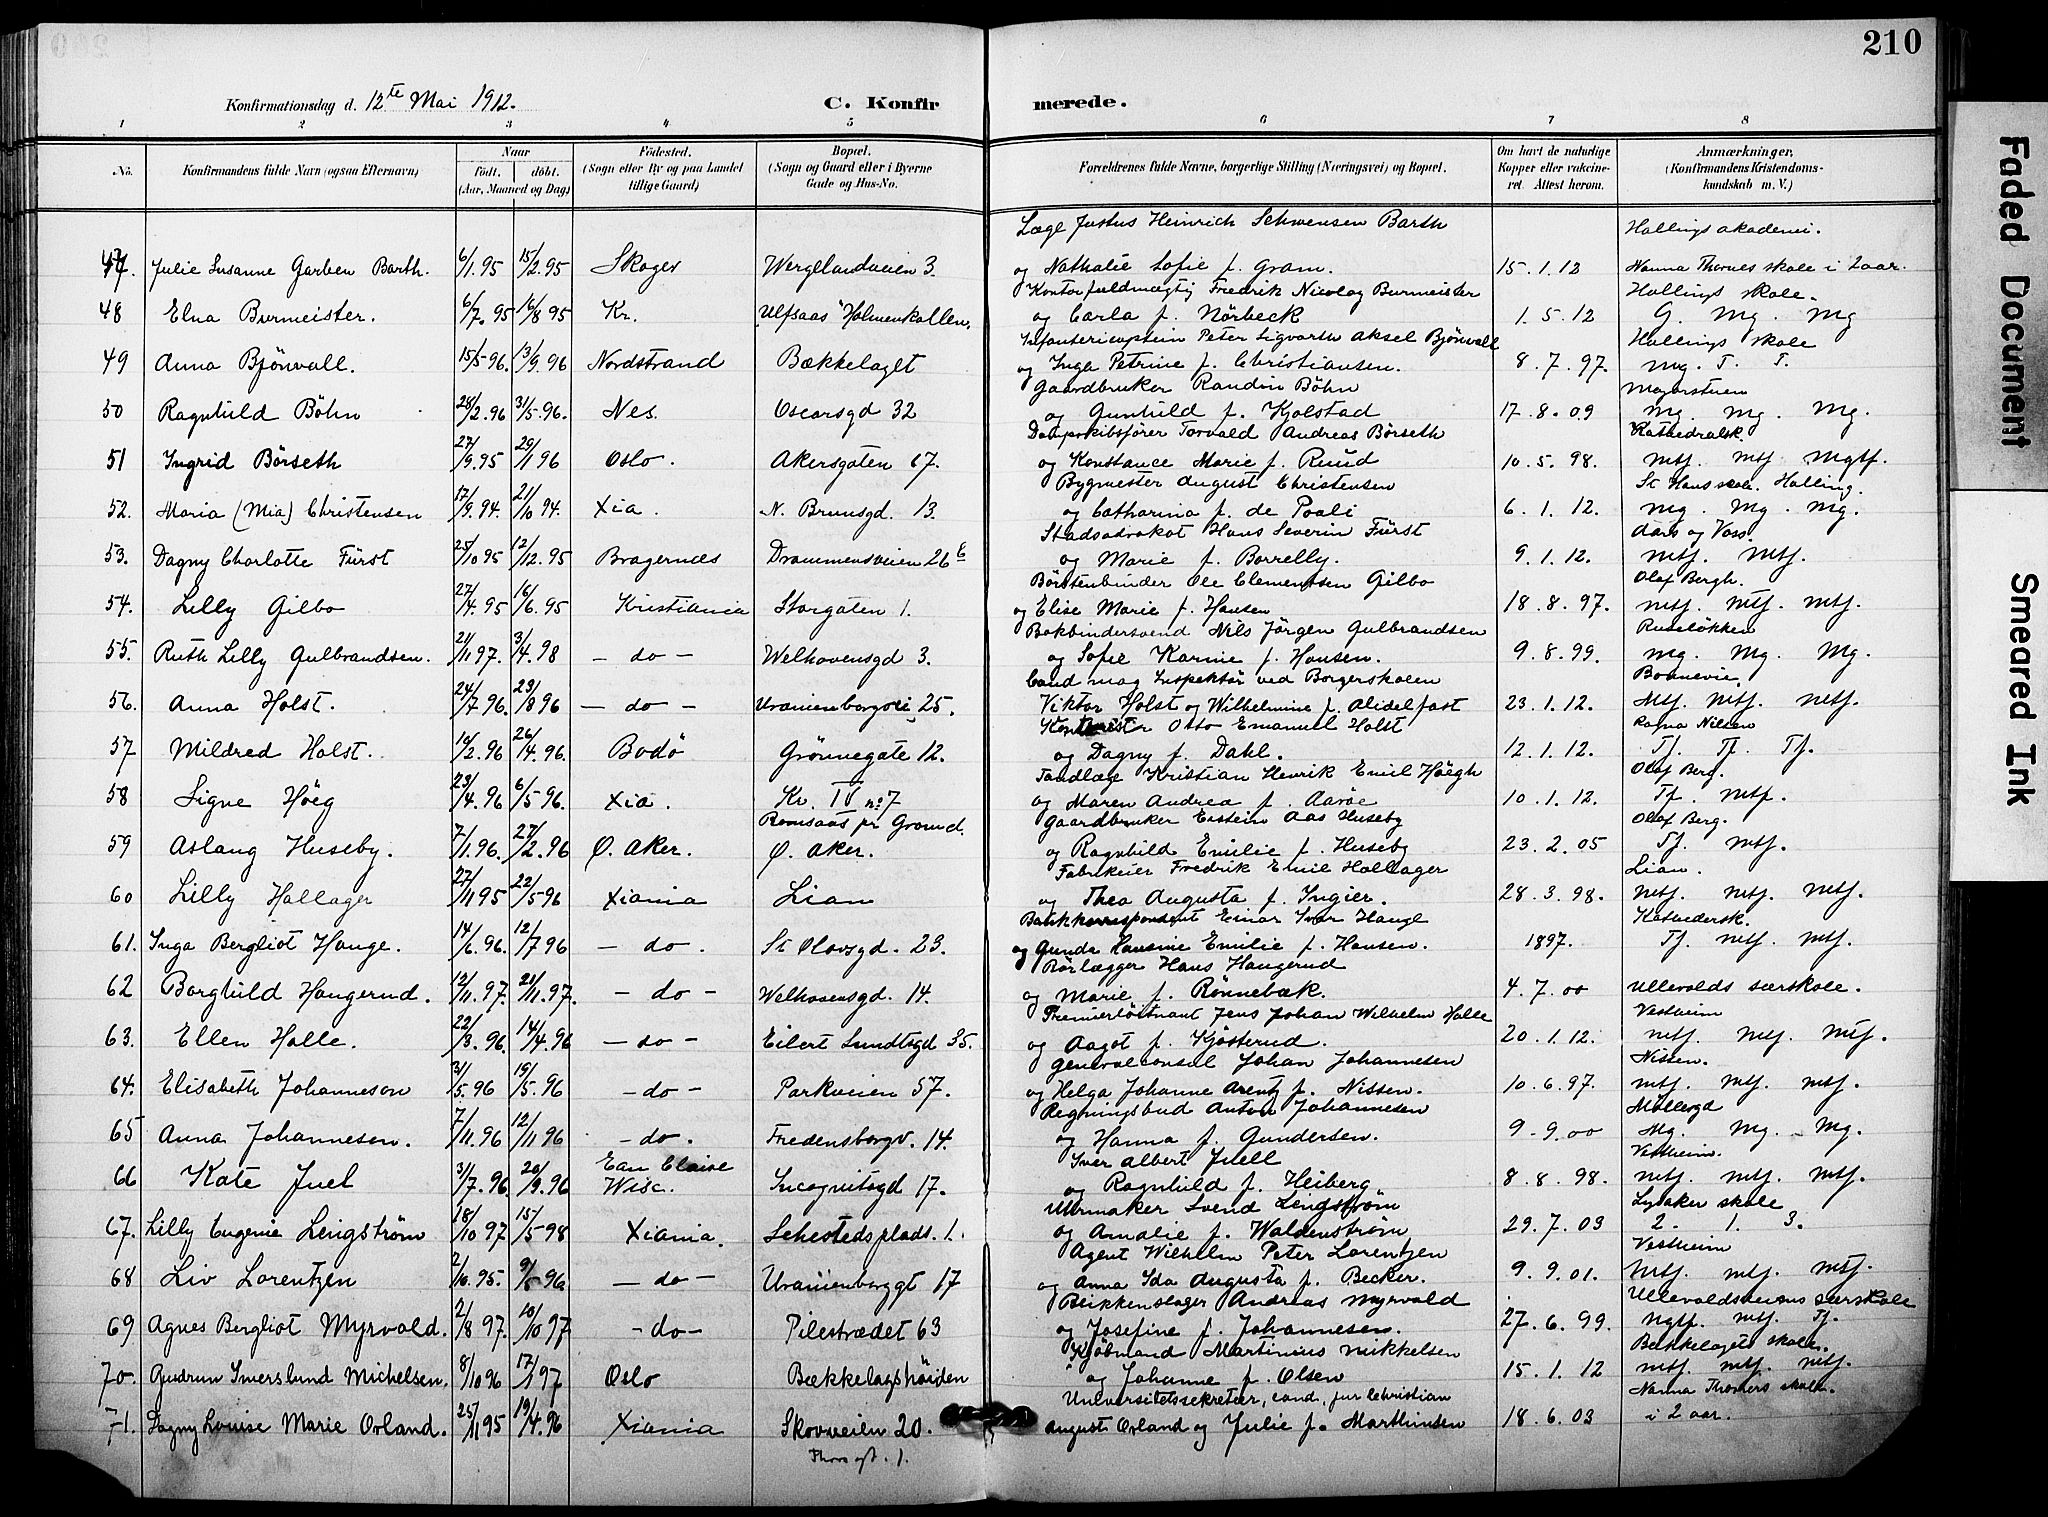 210
Konfirmationsdag d. 12te Mai 1912. C. Konfirmerede.
1 2 3 4 5 6 7 8
No. Konfirmandens fulde Navn (ogsaa Efternavn) Naar født. døbt. (Aar, Maaned og Dag) Fødested. (Sogn eller By og paa Landet tillige Gaard) Bopæl. (Sogn og Gaard eller i Byerne Gade og Hus-No. Forældrenes fulde Navne, borgerlige Stilling (Næringsvei) og Bopæl. Om havt de naturlige Kopper eller vaccineret. Attest herom. Anmærkninger. (Konfirmandens Kristendomskundskab m. V.)
Læge Justus Heinrich Schwensen Barth Hallings akademi.
47. Julie Susanne Garben Barth. 6/1.95 15/2.95 Skoger Wergelandsveien 3. og Nathalie Sofie f. Gram. 15.1.12 Nanna Thornes skole i 2 aar.
Kontorfuldmægtig Fredrik Nicolay Burmeister Hallings skole.
48 Elna Burmeister. 6/7.95 16/8 95 Kr. Ulfsaas Holmenkollen. og Carla f. Nörbeck 1.5.12 G. Mg. Mg
Infantericaptein Peter Sigvarth Aksel Bjönvall Hallings skole
49 Anna Bjönvall. 15/5 96. 13/9.96 Nordstrand Bækkelaget og Inga Petrine f. Christiansen. 8.7.97. Mg. T. T.
Gaardbruker Randin Böhn Majorstuen
50 Ragnhild Böhn 28/2.96 31/5.96. Nes. Oscarsgd 32 og Gunhild f. Kjolstad 17.8.09 Mg. Mg. Mg.
Dampskibsfører Torvald Andreas Börseth Kathedralsk.
51 Ingrid Börseth 27/9.95 29/1 96 Oslo. Akersgaten 67. og Konstance Marie f. Ruud 10.5.98. Mtf. Mtf Mgtf.
Bygmester August Christensen St Hans skole. Halling.
52. Maria (Mia) Christensen 17/9.94. 21/10 94. Xia. N. Brunsgd. 13. og Catharina f. de Poali 6.1.12. Mg. Mg. Mg.
Stadsadvokat Hans Severin Fürst Aars og Voss.
53. Dagny Charlotte Fürst 25/10 95 12/12.95 Bragernes Drammensveien 26 c og Marie f. Borrelly. 9.1.12. Mtf. Mtf.
Börstenbinder Ole Clementsen Gilbo Olaf Bergh.
54. Lilly Gilbo 27/4.95 16/6.95 Kristiania Storgaten 1. og Elise Marie f. Hansen 18.8.97. Mtf. Mtf. Mtf.
Bokbindersvend Nils Jörgen Gulbrandsen Ruseløkken
55. Ruth Lilly Gulbrandsen. 21/11 97. 3/4.98 – do – Welhavensgd 3. og Sofie Karine f. Hansen. 9.8.99. Mg. Mg. Mg.
Cand mag Inspektör ved Borgerskolen Bonnevie
56. Anna Holst. 24/7 96. 23/8 96 – do – Uranienborgvei 25. Viktor Holst og Wilhelmine f. Alidelfast 23.1.12. Mtf. Mtf. Mtf.
Kontorist Otto Emanuel Holst Ragna Nilsen
57 Mildred Holst. 10/2.96 26/4.96. Bodö Grönnegate 12. og Dagny f. Dahl. 12.1.12. Tf. Tf. Tf.
Tandlæge Kristian Henrik Emil Höegh Olaf Berg.
58 Signe Höeg 23/4.96 6/5 96. Xia. Kr. IV no 7 og Maren Andrea f. Aaröe 10.1.12. Tf. Mtf.
Romsaas pr Grorud. Gaardbruker Eistein Aas Huseby Olaf Berg.
59 Aslaug Huseby. 7/1.96. 27/2.96 Ø. Aker. Ø. Aker. og Ragnhild Emilie f. Huseby 23.2.05 Tf. Mtf.
Fabrikeier Fredrik Emil Hallager Lian.
60 Lilly Hallager 27/11 95 22/5 96 Xiania Lian og Thea Augusta f. Ingier. 28.3.98. Mtf. Mtf. Mtf.
Bankkorrespondent Einar Iver Hauge Kathedersk.
61. Inga Bergliot Hauge. 14/6.96. 12/7 96 – do. St. Olavsgd. 23. og Gunda Hansine Emilie f. Hansen. 1897. Tf. Mtf. Mtf.
Rörlægger Hans Haugerud
62 Borghild Haugerud. 12/11.97. 21/11.97. – do – Welhavensgd. 14. og Marie f. Rönnebæk. 4.7.00 Ullevolds særskole.
Premierlöitnant Jens Johan Wilhelm Halle Vestheim
63. Ellen Halle. 22/3.96. 14/4.96 – do – Eilert Sundtsgd 35. og Aagot f. Kjösterud. 20.1.12. Mtf. Mtf. Mtf.
Generalconsul Johan Johannesen Nissen.
64. Elisabeth Johanneson 31/5.96 19/5.96 – do – Parkveien 57. og Helga Johanne Arentz f. Nissen. 10.6.97. Mtf. Mtf. Mtf.
Regningsbud Anton Johannesen Møllergd
65 Anna Johannesen. 7/11.96 12/11 96 – do. Fredensborgv. 14. og Hanna f. Gundersen. 9–9.00 Mg. Mg. Mg.
Eau Claire Iver Albert Juell Vestheim.
66 Kate Juel 3/7.96. 20/9.96 Wisc. Incognitogd 17. og Ragnhild f. Heiberg. 8.8.98. Mtf. Mtf. Mtf.
Uhrmaker Svend Lengström Lysaker skole
67. Lilly Eugenie Lengström 18/10 97 15/5 98 Xiania. Sehestedsplads. 1. og Amalie f. Waldenström 29.7.03 2. 1. 3.
Agent Wilhelm Peter Lorentzen Vestheim
68 Liv Lorentzen 2/10.95. 9/5 96 – do – Uranienborggt 17 og Anna Ida Augusta f. Becker. 9.9.01. Mtf. Mtf. Mtf.
Blikkenslager Andreas Myrvold Ullevoldsveiens særskole
69 Agnes Bergliot Myrvold. 2/8 97. 10/10 97 – do – Pilestrædet 63 og Josefine f. Johannesen. 27.6.99. Ngtf. Mtf. Tf.
Kjöbmand Martinius Mikkelsen Bækkelagets skole.
70. Gudrun Smerslund Michelsen. 8/10 96 17/1 97 Oslo Bækkelagshöiden og Johanne f. Olsen 15.1.12 Mtf. Mtf. Mtf.
Universitetssekretær, cand. jur Christian Nanna Thomers skole.
71. Dagny Louise Marie Orland. 25/11 95 19/4.96 Xiania Skovveien 20. August Orland og Julie f. Marthinsen 18.6.03 i 2 aar.
Faded Document
Smeared Ink